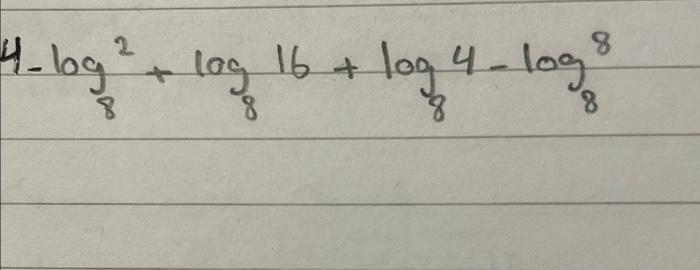 4-log₈² + log₈ 16 + log₈ 4 - log₈⁸